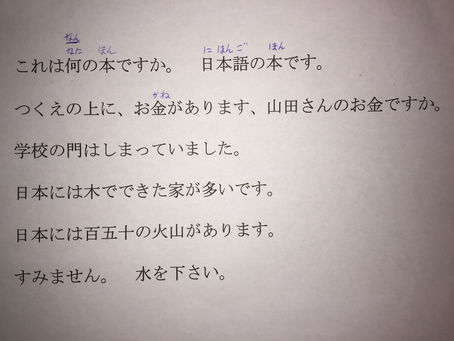 なん
なに ほん にほんご ほん
これは何の本ですか。 日本語の本です。
かね
つくえの上に、お金があります、山田さんのお金ですか。
学校の門はしまっていました。
日本には木でできた家が多いです。
日本には百五十の火山があります。
すみません。 水を下さい。